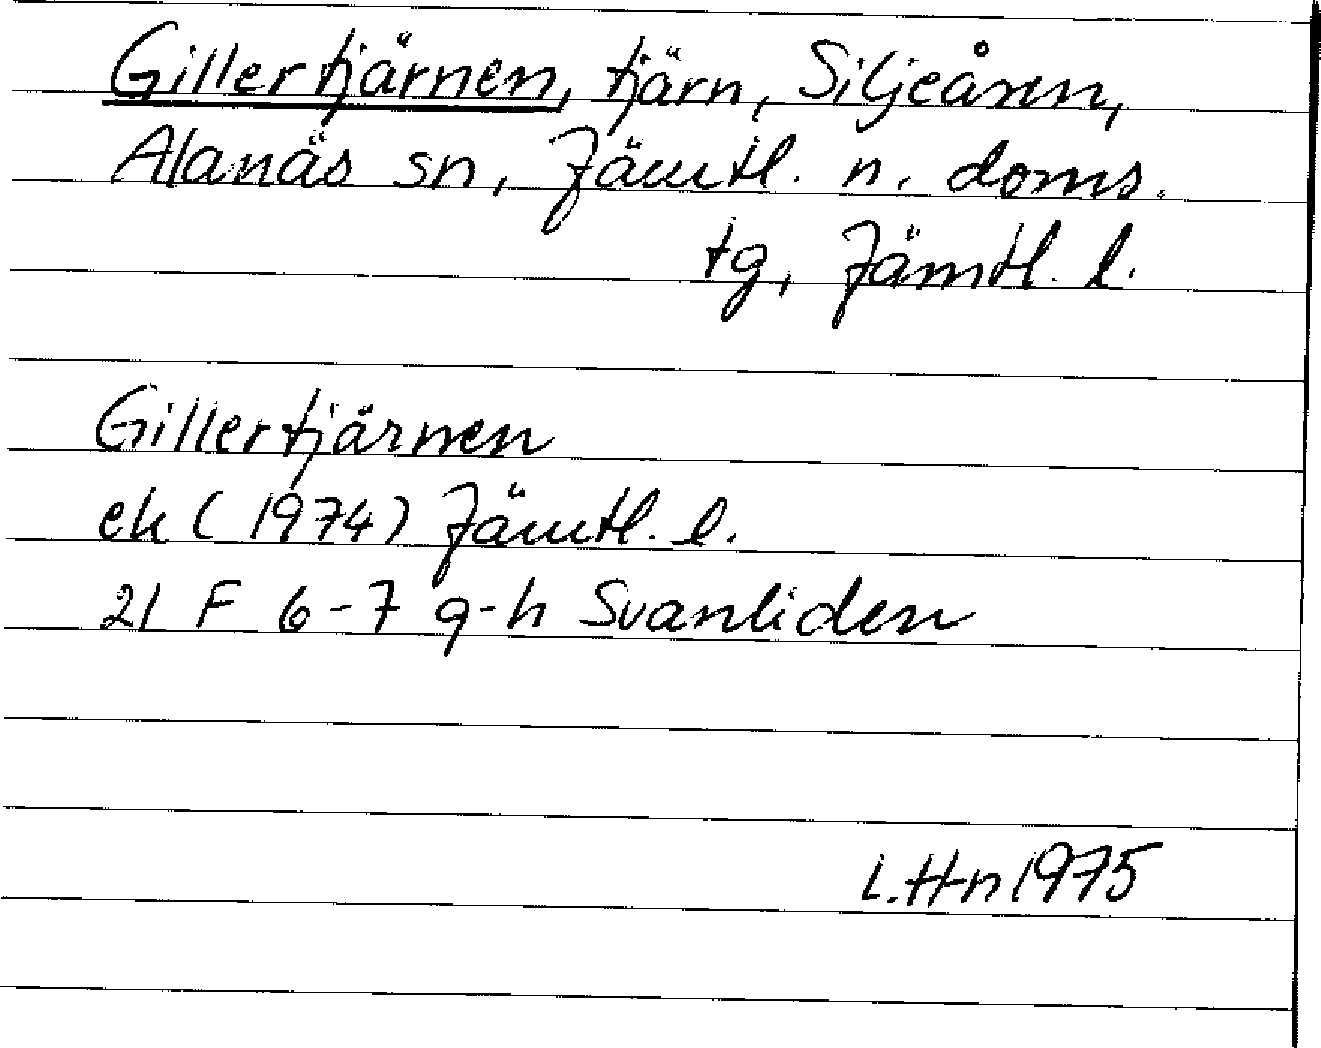 Gillertjärnen, tjärn, Siljeåsen,
Alanäs sn, Jämtl. n. doms.
tg, Jämtl. l.
Gillertjärnen
ek (1974) Jämtl. l.
21 F 6-7 g-h Svanliden
L.Hn 1975